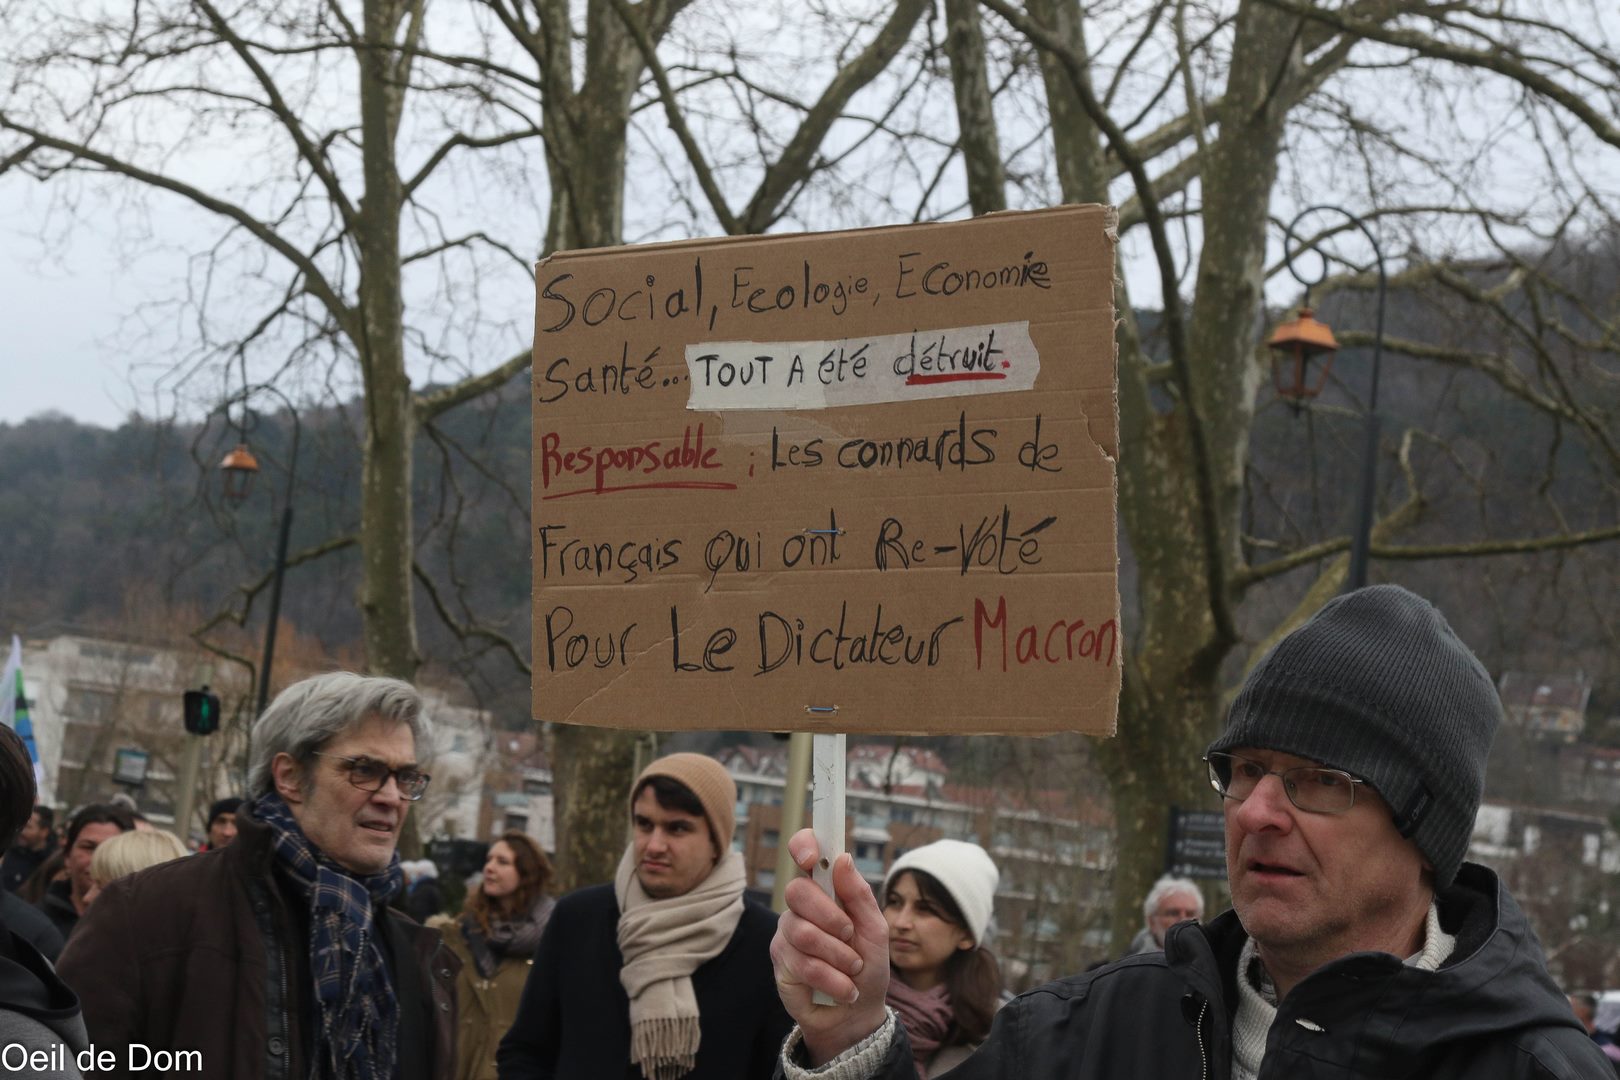 Social, Ecologie, Economie
Santé... TOUT A été détruit.
Responsable ; Les connards de
Français Qui ont Re-Voté
Pour Le Dictateur Macron
Oeil de Dom